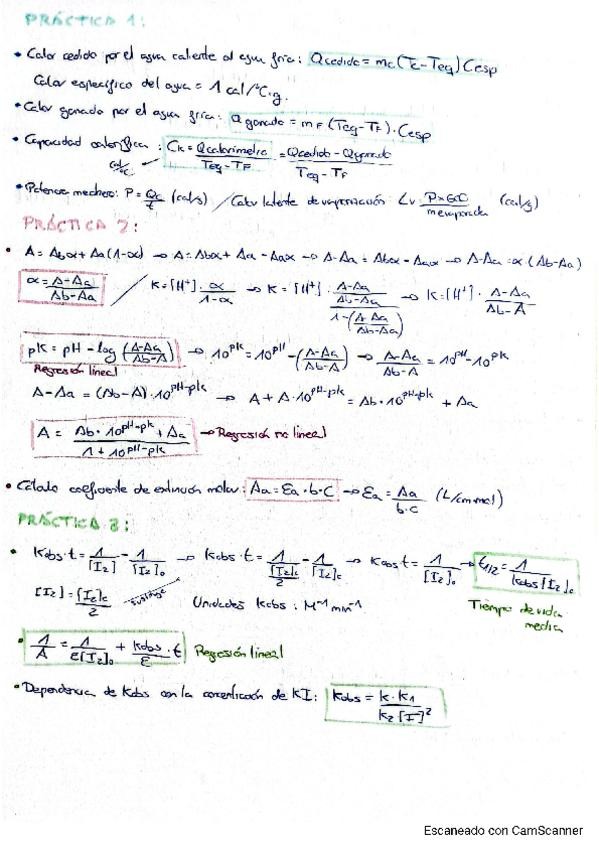 PRÁCTICA 1:
• Calor cedido por el agua caliente al agua fría: Qcedido = mc (Tc - Teq) Cesp
Calor específico del agua = 1 cal/°C·g.
• Calor ganado por el agua fría: Qganado = mF (Teq - TF) · Cesp
• Capacidad calorífica: CK = Qcalorímetro / (Teq - TF) = (Qcedido - Qganado) / (Teq - TF)
cal/°C
• Potencia mechero: P = Qc/t (cal/s) / Calor latente de vaporización: Lv = P×600 / m evaporada (cal/g)
PRÁCTICA 2:
• A = Abα + Aa(1-α) → A = Abα + Aa - Aaα → A - Aa = Abα - Aaα → A - Aa = α (Ab - Aa)
α = (A - Aa) / (Ab - Aa) / K = [H⁺] · α / (1-α) → K = [H⁺] · ((A-Aa)/(Ab-Aa)) / (1 - ((A-Aa)/(Ab-Aa))) → K = [H⁺] · (A - Aa) / (Ab - A)
pK = pH - log ((A-Aa)/(Ab-A)) → 10^pK = 10^pH - ((A-Aa)/(Ab-A)) → (A-Aa)/(Ab-A) = 10^pH - 10^pK
Regresión lineal
A - Aa = (Ab - A) · 10^pH-pK → A + A·10^pH-pK = Ab · 10^pH-pK + Aa
A = (Ab · 10^pH-pK + Aa) / (1 + 10^pH-pK) → Regresión no lineal
• Cálculo coeficiente de extinción molar: Aa = Ea · b · C → Ea = Aa / b·c (L/cm·mol)
PRÁCTICA 3:
• Kobs · t = 1/[I2] - 1/[I2]o → Kobs · t = 1/([I2]o/2) - 1/[I2]o → Kobs t = 1/[I2]o → t1/2 = 1/Kobs[I2]o
[I2] = [I2]o / 2 sustituye Unidades Kobs: M⁻¹ min⁻¹ Tiempo de vida
media
• 1/A = 1/ε[I2]o + Kobs/ε · t Regresión lineal
• Dependencia de Kobs con la concentración de KI: Kobs = K · K1 / K2 [I⁻]²
Escaneado con CamScanner